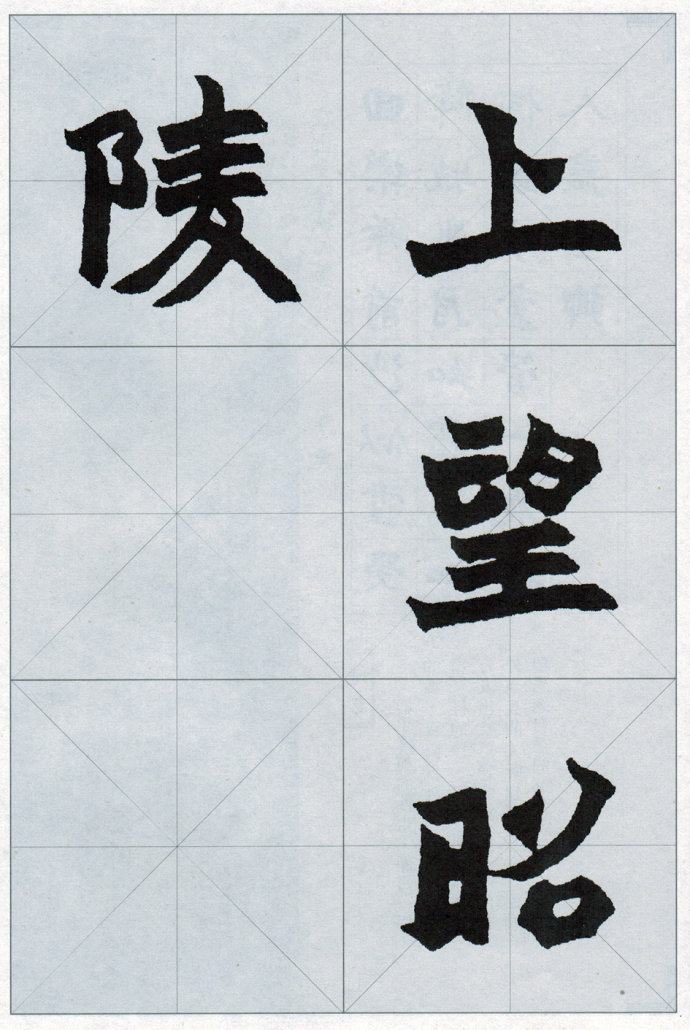 上望昭
陵